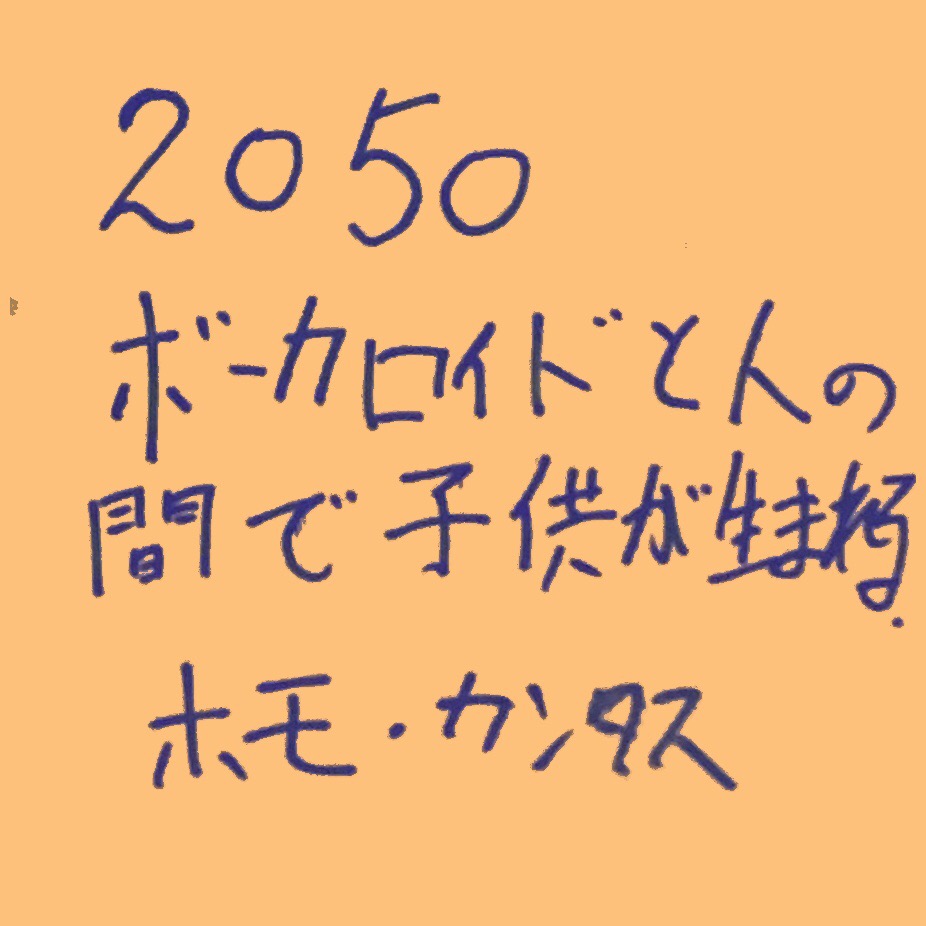 2050
ボーカロイドと人の
間で子供が生まれる.
ホモ・カンタス